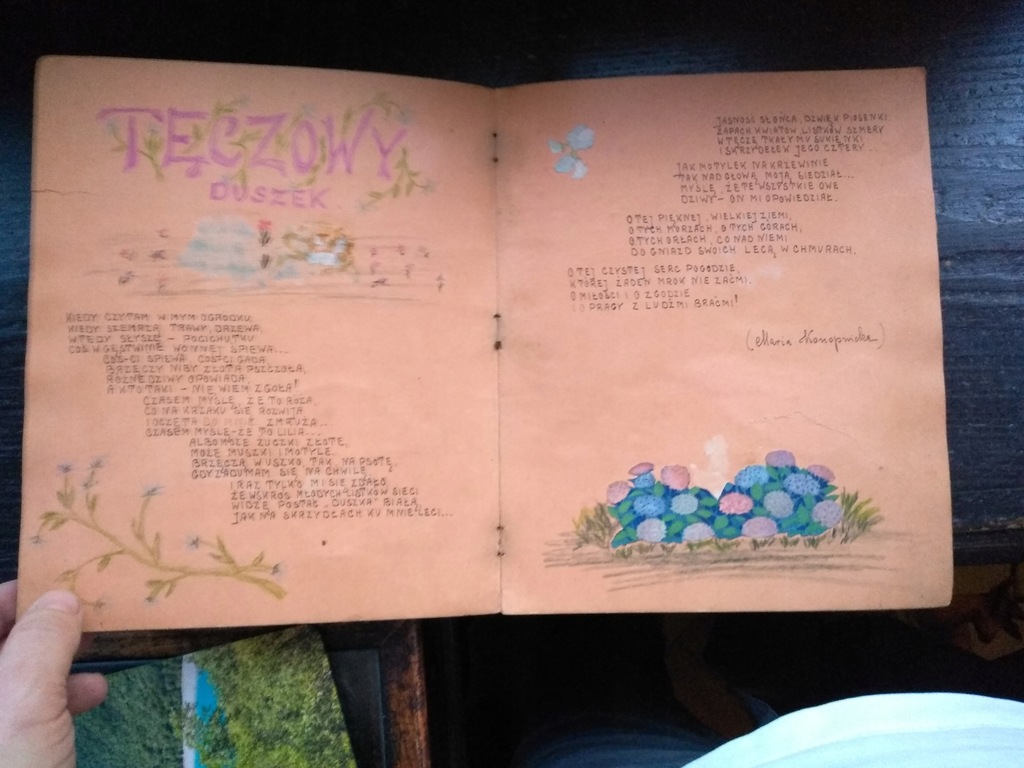 TĘCZOWY
DUSZEK
KIEDY CZYTAM W MYM OGRÓDKU,
KIEDY SZEMRZĄ TRAWY, DRZEWA,
WTEDY SŁYSZĘ - POCICHUTKU
COŚ W GĘSTWINIE WONNEJ ŚPIEWA...
COŚ-CI ŚPIEWA COŚ-CI GADA
BRZĘCZY NIBY ZŁOTA PSZCZOŁA,
RÓŻNE DZIWY OPOWIADA,
A KTO TAKI - NIE WIEM ZGOŁA!
CZASEM MYŚLĘ, ŻE TO RÓŻA,
CO NA KRZAKU SIĘ ROZWIJA
I OCZĘTA DO MNIE ZMRUŻA...
CZASEM MYŚLĘ-ŻE TO LILIA...
ALBO MOŻE ŻUCZKI ZŁOTE,
MOŻE MUSZKI I MOTYLE
BRZĘCZĄ W USZKO, TAK, NA PSOTĘ
GDY ZADUMAM SIĘ NA CHWILĘ
I RAZ TYLKO MI SIĘ ZDAŁO
ŻE WSKROŚ MŁODYCH LISTKÓW SIECI
WIDZĘ POSTAĆ „DUSZKA" BIAŁĄ,
JAK NA SKRZYDŁACH KU MNIE LECI...
JASNOŚĆ SŁOŃCA, DŹWIĘK PIOSENKI
ZAPACH KWIATÓW, LISTKÓW SZMERY
W TĘCZĘ TKAŁY MU SUKIENKI
I SKRZYDEŁEK JEGO CZTERY...
JAK MOTYLEK NA KRZEWINIE
TAK NAD GŁOWĄ MOJĄ SIEDZIAŁ...
MYŚLĘ, ŻE TE WSZYSTKIE OWE
DZIWY - ON MI OPOWIEDZIAŁ.
O TEJ PIĘKNEJ, WIELKIEJ ZIEMI,
O TYCH MORZACH, O TYCH GÓRACH,
O TYCH ORŁACH, CO NAD NIEMI
DO GNIAZD SWOICH LECĄ, W CHMURACH,
O TEJ CZYSTEJ SERC POGODZIE,
KTÓREJ ŻADEN MROK NIE ZAĆMI.
O MIŁOŚCI I O ZGODZIE
I O PRACY Z LUDŹMI BRAĆMI!
(Maria Konopnicka)